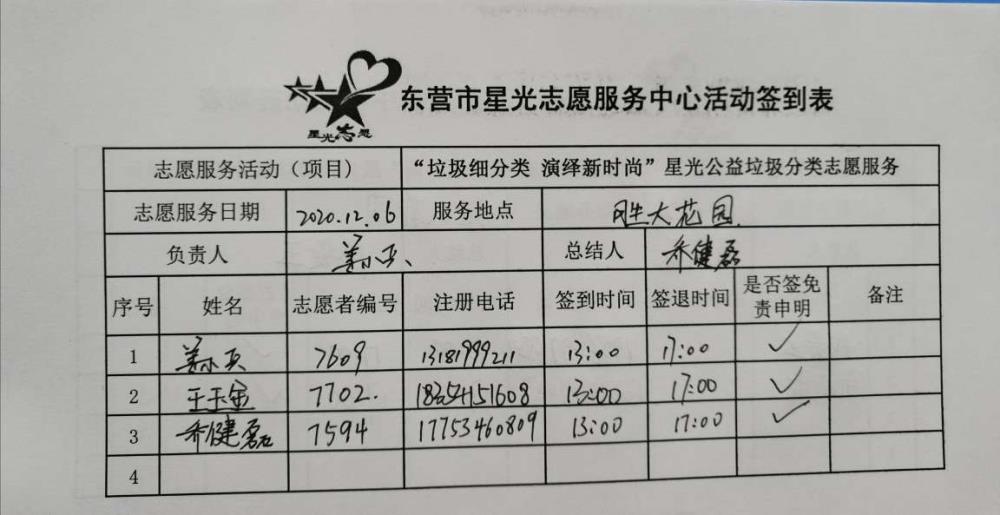 星光志愿
东营市星光志愿服务中心活动签到表
志愿服务活动（项目） “垃圾细分类 演绎新时尚”星光公益垃圾分类志愿服务
志愿服务日期 2020.12.06 服务地点 胜大花园
负责人 姜小兵 总结人 乔健磊
序号 姓名 志愿者编号 注册电话 签到时间 签退时间 是否签免责申明 备注
1 姜小兵 7609 13181999211 13:00 17:00 ✓
2 王玉金 7702. 18354151608 13:00 17:00 ✓
3 乔健磊 7594 17753460809 13:00 17:00 ✓
4